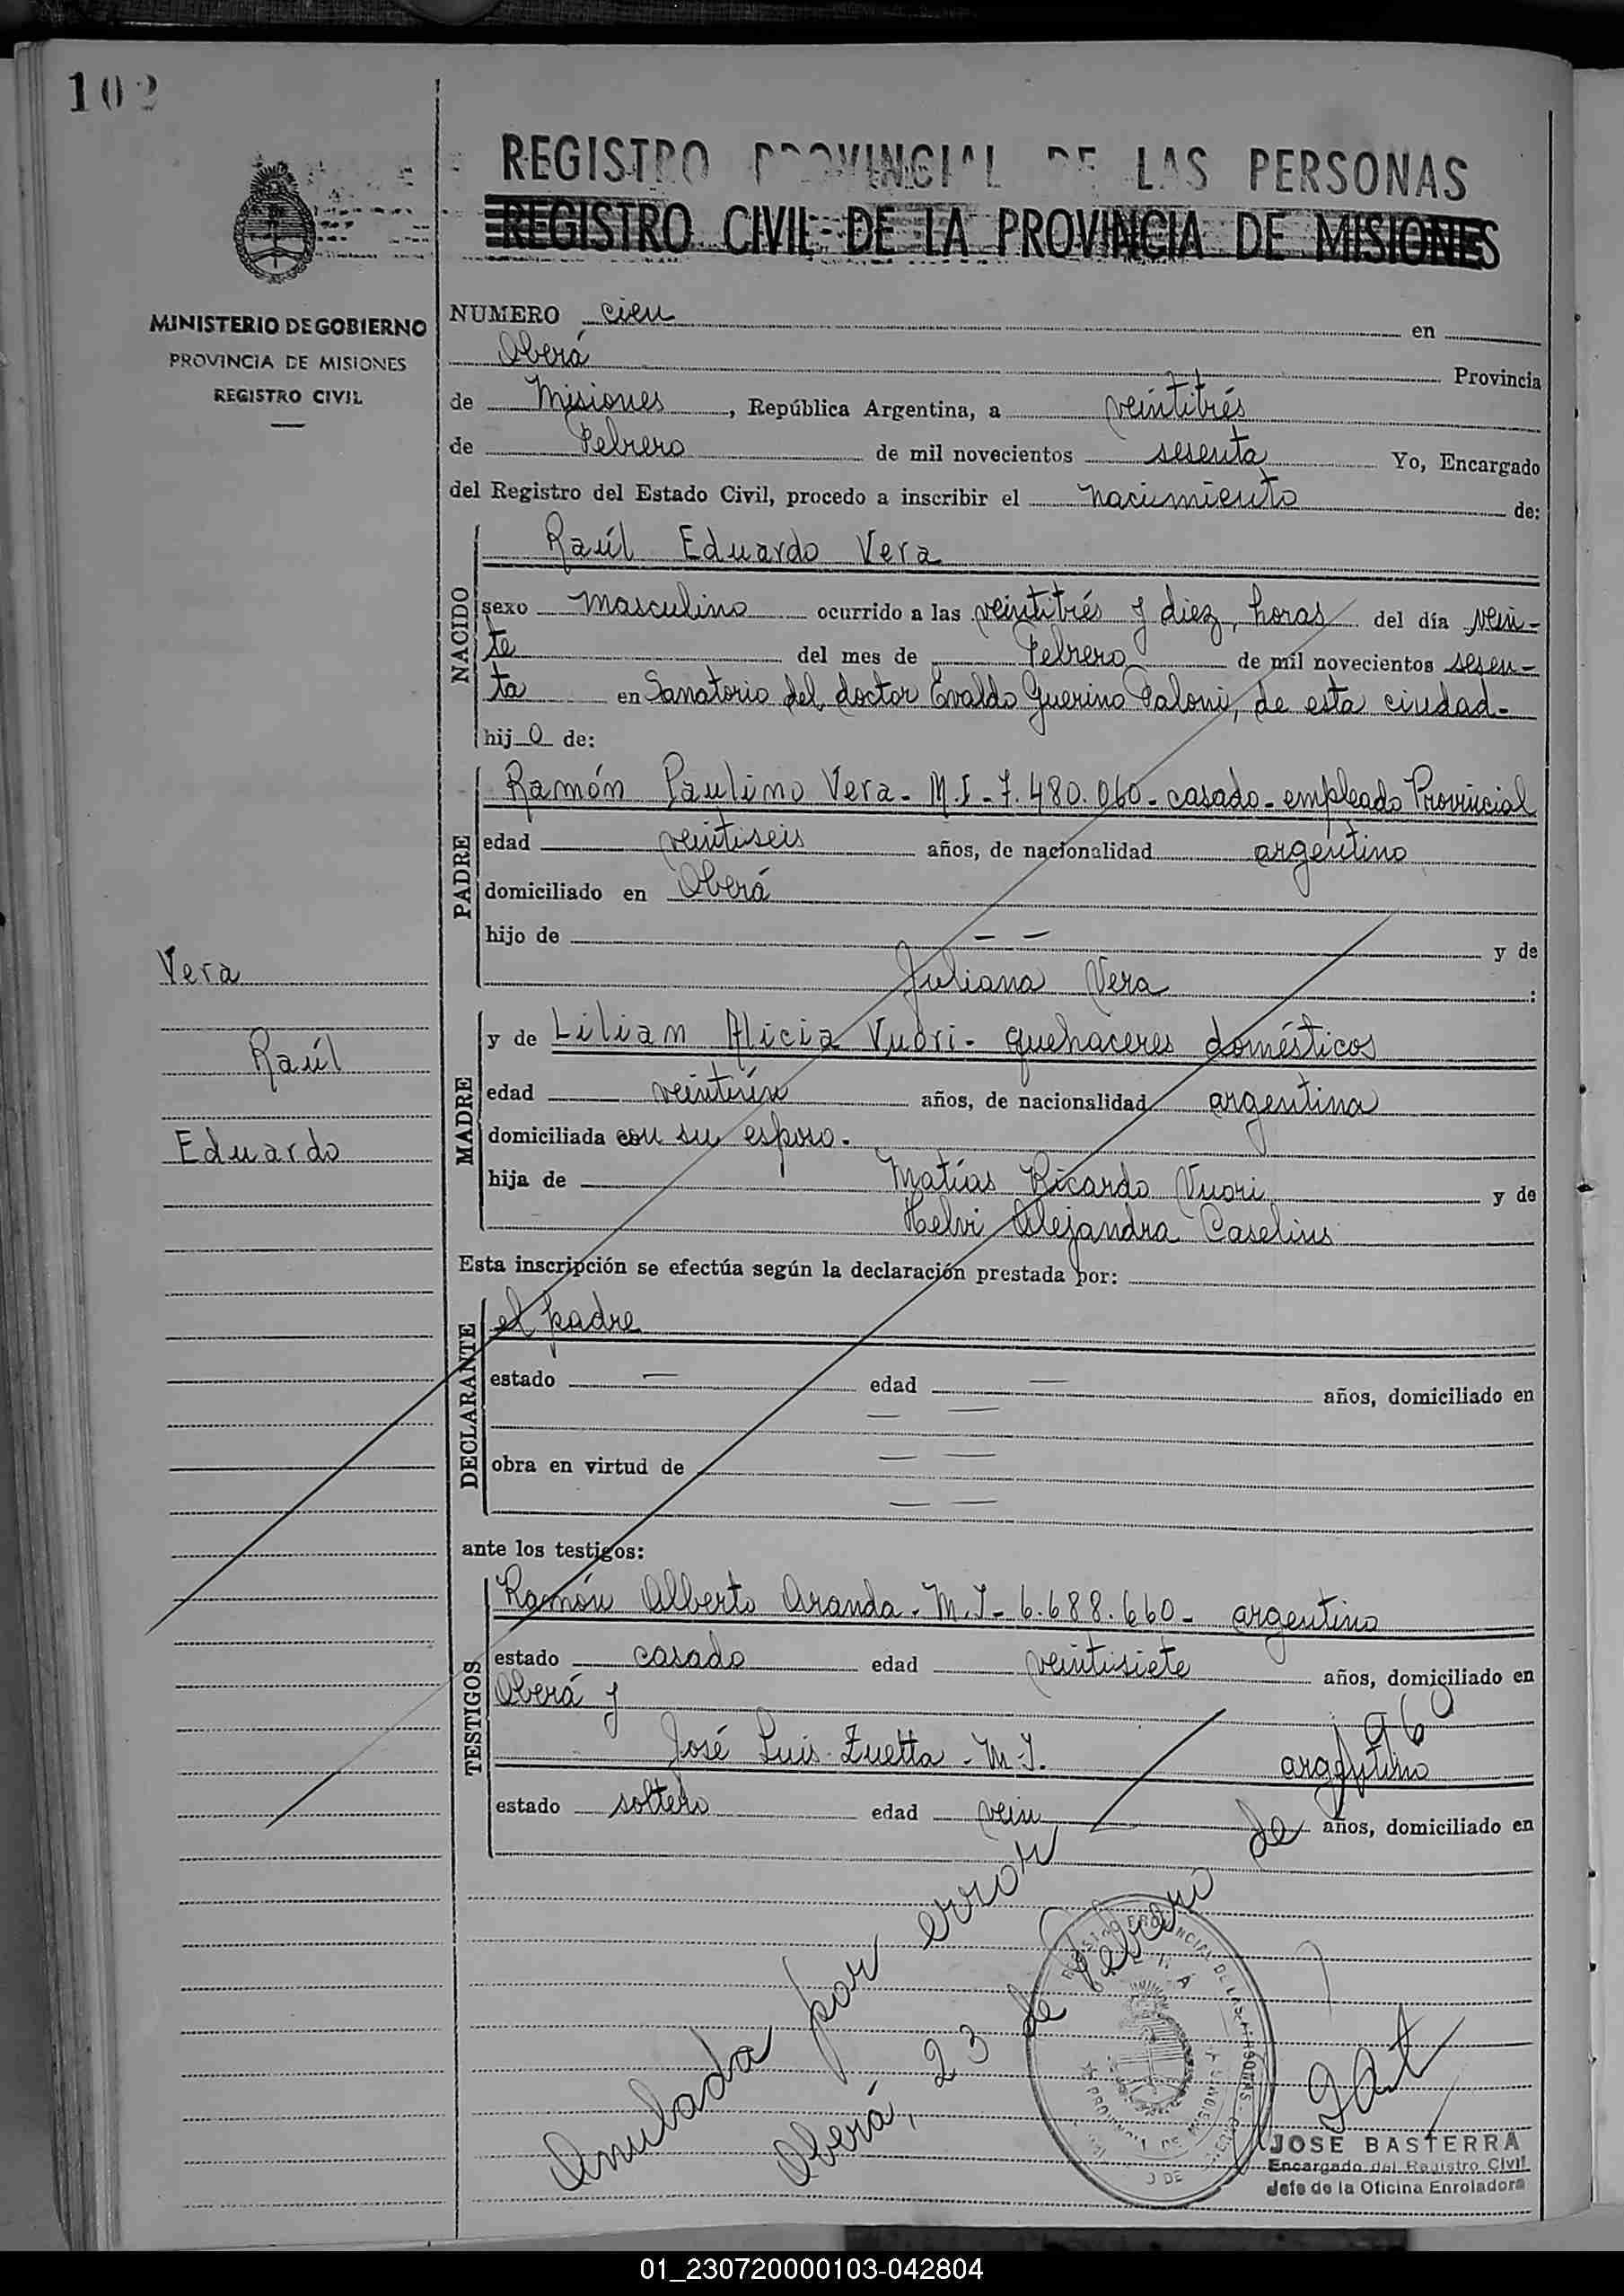 102
REGISTRO PROVINCIAL DE LAS PERSONAS
REGISTRO CIVIL DE LA PROVINCIA DE MISIONES
MINISTERIO DE GOBIERNO
PROVINCIA DE MISIONES
REGISTRO CIVIL
NUMERO cien en
Oberá Provincia
de Misiones, República Argentina, a veintitrés
de Febrero de mil novecientos sesenta Yo, Encargado
del Registro del Estado Civil, procedo a inscribir el nacimiento de:
NACIDO
Raúl Eduardo Vera
sexo masculino ocurrido a las veintitrés y diez, horas del día vein-
te del mes de Febrero de mil novecientos sesen-
ta en Sanatorio del doctor Evaldo Guerino Paloni, de esta ciudad-
hijo de:
PADRE
Ramón Paulino Vera - M.I - 7.480.060 - casado - empleado Provincial
edad veintiseis años, de nacionalidad argentino
domiciliado en Oberá
hijo de — — y de
Juliana Vera :
Vera
Raúl
Eduardo
MADRE
y de Lilian Alicia Vuori - quehaceres domésticos
edad veintiún años, de nacionalidad argentina
domiciliada con su esposo.
hija de Matías Ricardo Vuori y de
Helvi Alejandra Caselius
Esta inscripción se efectúa según la declaración prestada por:
DECLARANTE
el padre
estado — edad — años, domiciliado en
— —
obra en virtud de — —
— —
ante los testigos:
TESTIGOS
Ramón Alberto Aranda - M.I - 6.688.660 - argentino
estado casado edad veintisiete años, domiciliado en
Oberá y
José Luis Zuetta - M.I. argentino
estado soltero edad vein años, domiciliado en
Anulada por error
Oberá, 23 de Febrero de 1960
JOSE BASTERRA
Encargado del Registro Civil
Jefe de la Oficina Enroladora
01_230720000103-042804